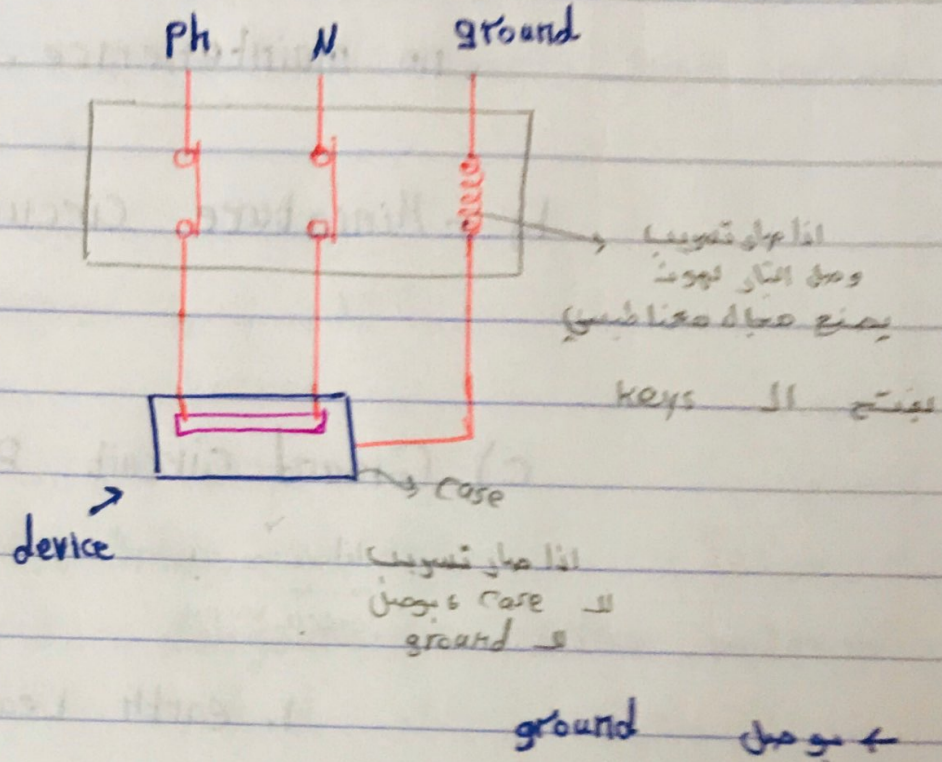 Ph N ground
اذا صار تسريب
وصل التيار لهون
يصنع مجال مغناطيسي
بفتح الـ keys
case
device
اذا صار تسريب
لل case بوصل
لل ground
← بوصل ground